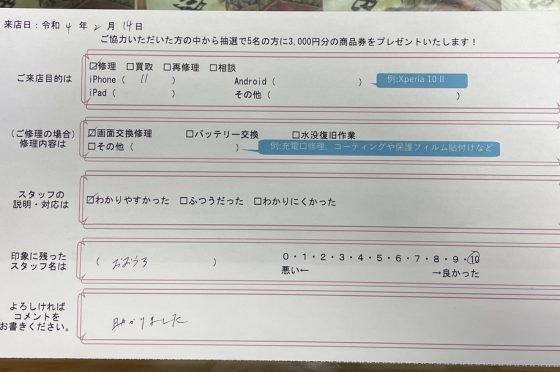 来店日：令和 4 年 2 月 14 日
ご協力いただいた方の中から抽選で5名の方に3,000円分の商品券をプレゼントいたします！
ご来店目的は
☑修理 □買取 □再修理 □相談
iPhone（ 11 ） Android（ ） 例:Xperia 10 II
iPad（ ） その他（ ）
（ご修理の場合）
修理内容は
☑画面交換修理 □バッテリー交換 □水没復旧作業
□その他（ ） 例:充電口修理、コーティングや保護フィルム貼付けなど
スタッフの
説明・対応は
☑わかりやすかった □ふつうだった □わかりにくかった
印象に残った
スタッフ名は
（ ）
0・1・2・3・4・5・6・7・8・9・10
悪い← →良かった
よろしければ
コメントを
お書きください。
助かりました